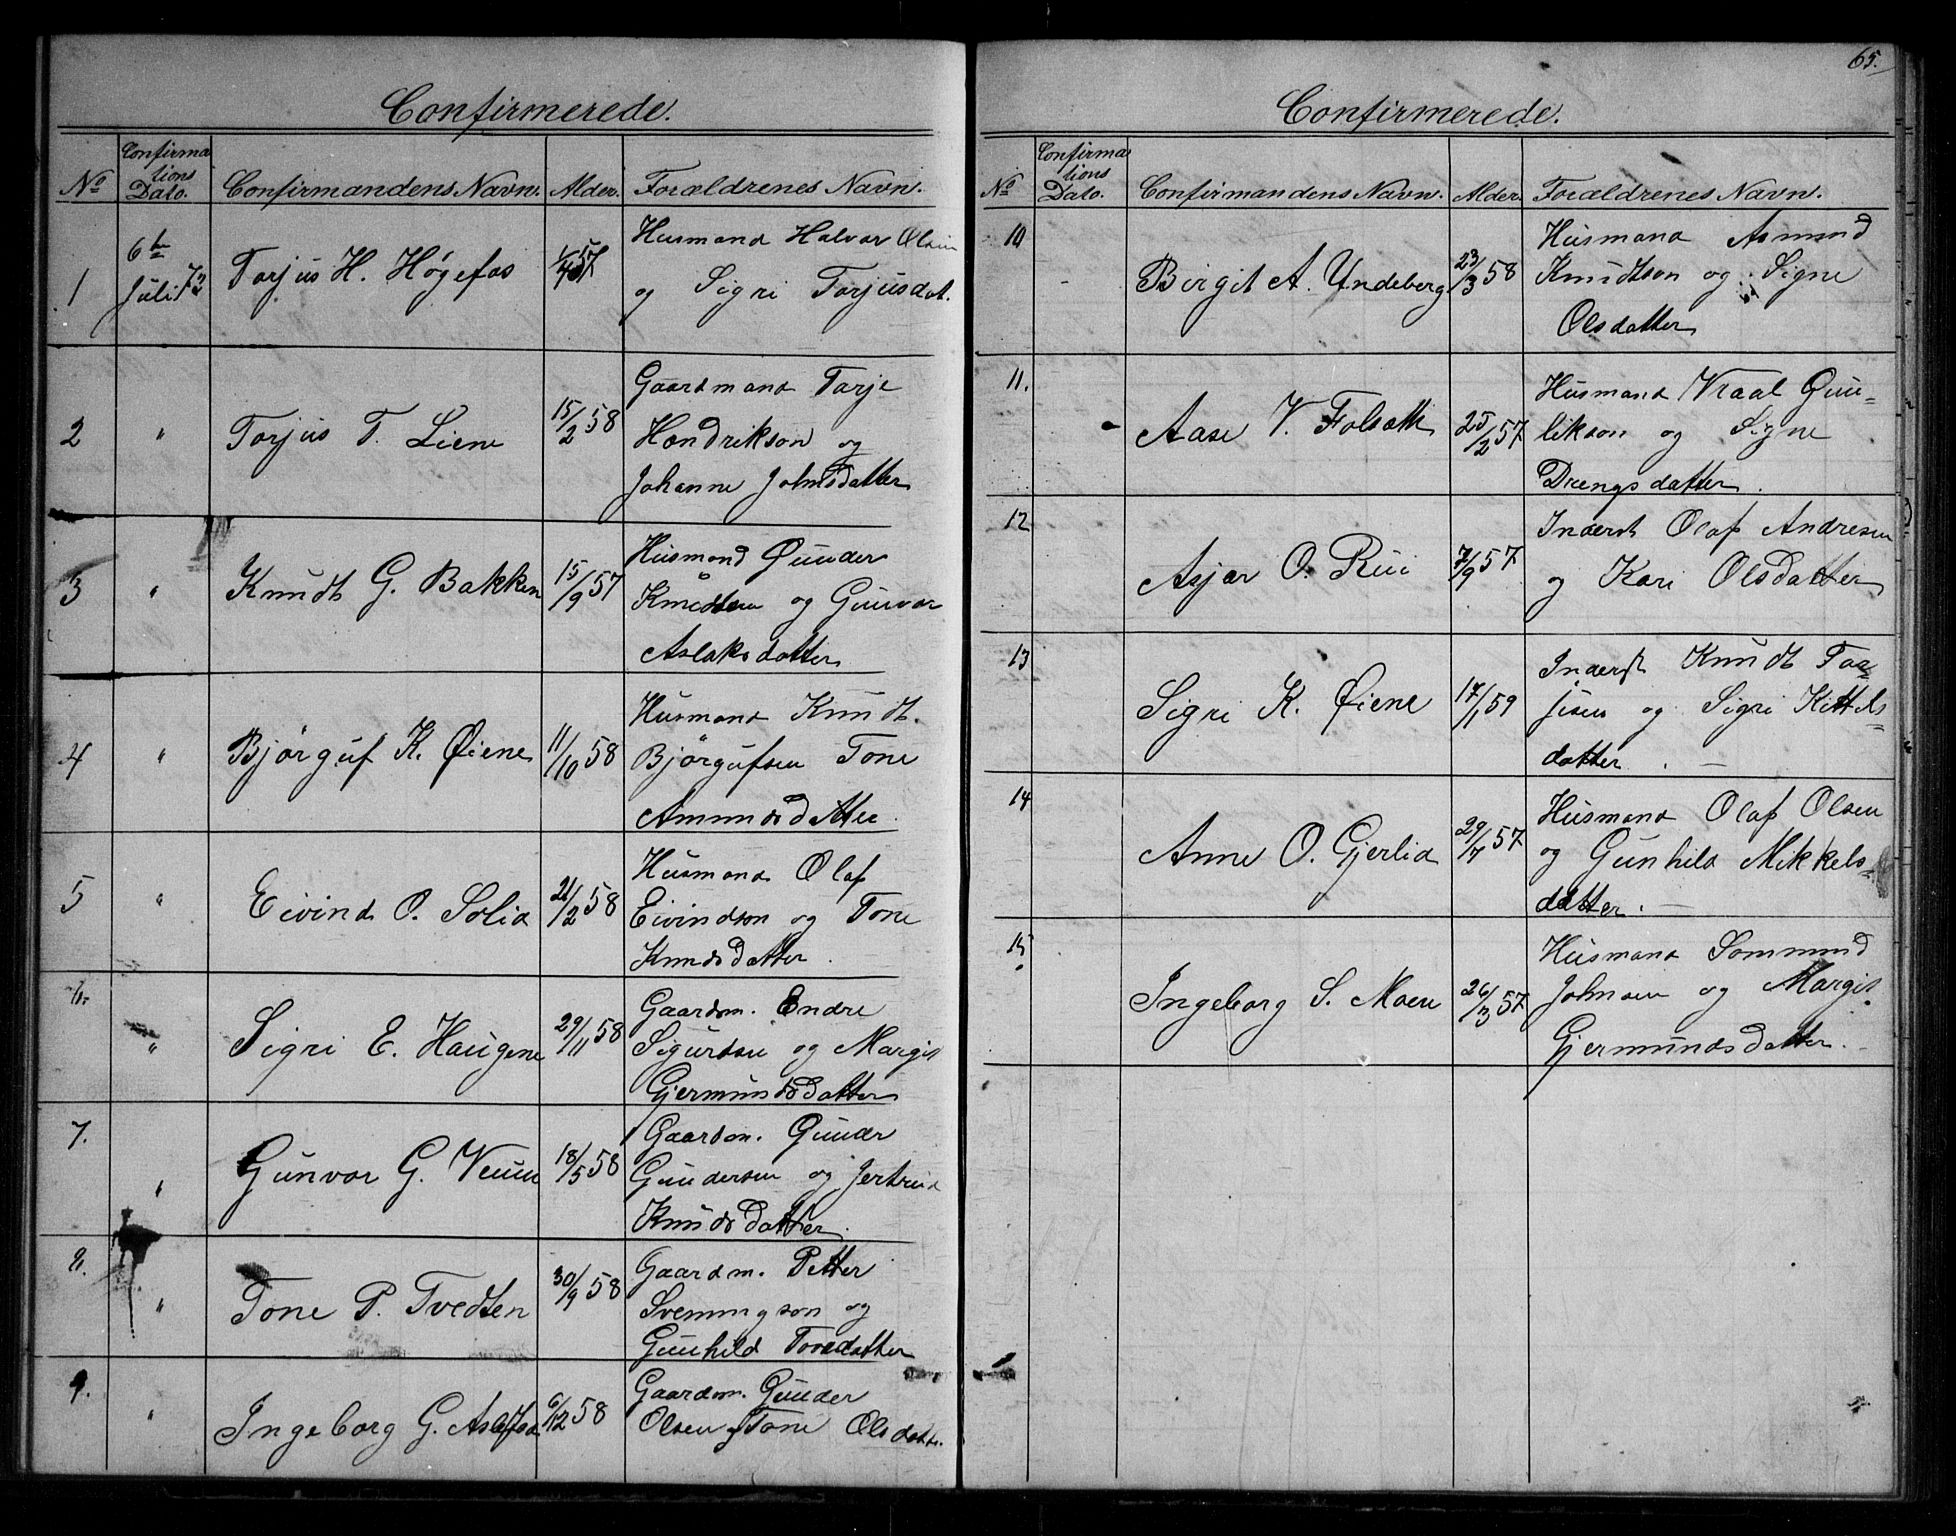 Confirmerede.
No Confirmations Dato. Confirmandens Navn. Alder. Forældrenes Navn.
1 6te Juli 73 Torjus H. Høgefos 57 Husmand Halvor Olsen
og Sigri Torjusdat.
2 " Torjus T. Liene 15/2 58 Gaardmand Tarje
Hendrikson og
Johanne Johnsdatter
3 " Knudt G. Bakken 15/9 57 Husmand Gunder
Knudtsen og Gunvor
Aslaksdatter
4 " Bjørguf K. Øiene 11/10 58 Husmand Knudt
Bjørgufsen Tone
Amundsdatter
5 " Eivind O. Solid 21/2 58 Husmand Olaf
Eivindson og Tone
Knudsdatter.
6. " Sigri E. Haugene 29/11 58 Gaardm. Endre
Sigurdsen og Margit
Gjermundsdatter
7. " Gunvor G. Veum 18/5 58 Gaardm. Gunder
Gundersen og Jertrud
Knudsdatter.
8. " Tone P. Tvedten 30/9 58 Gaardm. Petter
Svenningson og
Gunhild Toredatter
9. " Ingeborg G. 6/12 58 Gaardm. Gunder
Olsen og Tone Olsdatt.
65.
Confirmerede.
No Confirmations Dato. Confirmandens Navn. Alder. Forældrenes Navn.
10 Birgit A. Undeberg 23/3 58 Husmand Asmund
Knudtson og Signe
Olsdatter
11. Aase V. Folsæth 25/2 57 Husmand Vraal Gun-
likson og Signe
Drengsdatter.
12 Asjær O. Rui 7/9 57 Inderst Olaf Andresen
og Kari Olsdatter
13 Sigri K. Øiene 17/1 59 Inderst Knudt Tor-
jisen og Sigri Kittels-
datter. -
14 Anne O. Gjerlid 29/7 57 Husmand Olaf Olsen
og Gunhild Mikkels-
datter. -
15 Ingeborg S. Moen 26/3 57 Husmand Sommund
Johnsen og Margit
Gjermundsdatter. -